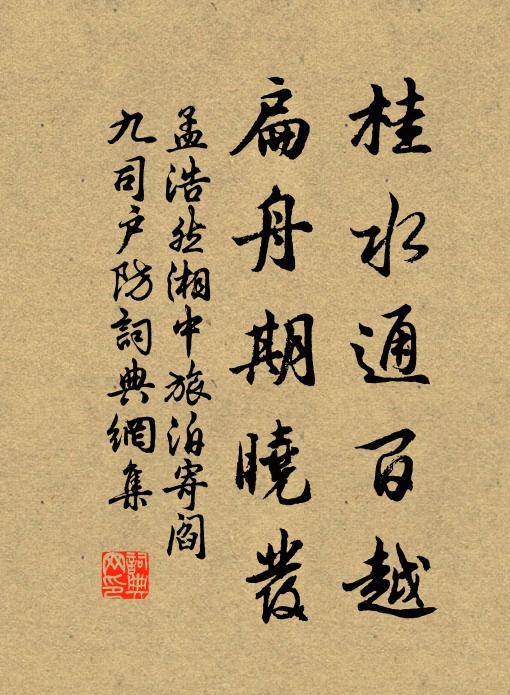 桂水通百越
扁舟期曉發
孟浩然湘中旅泊寄閻
九司户防詞典網集
詞典網印